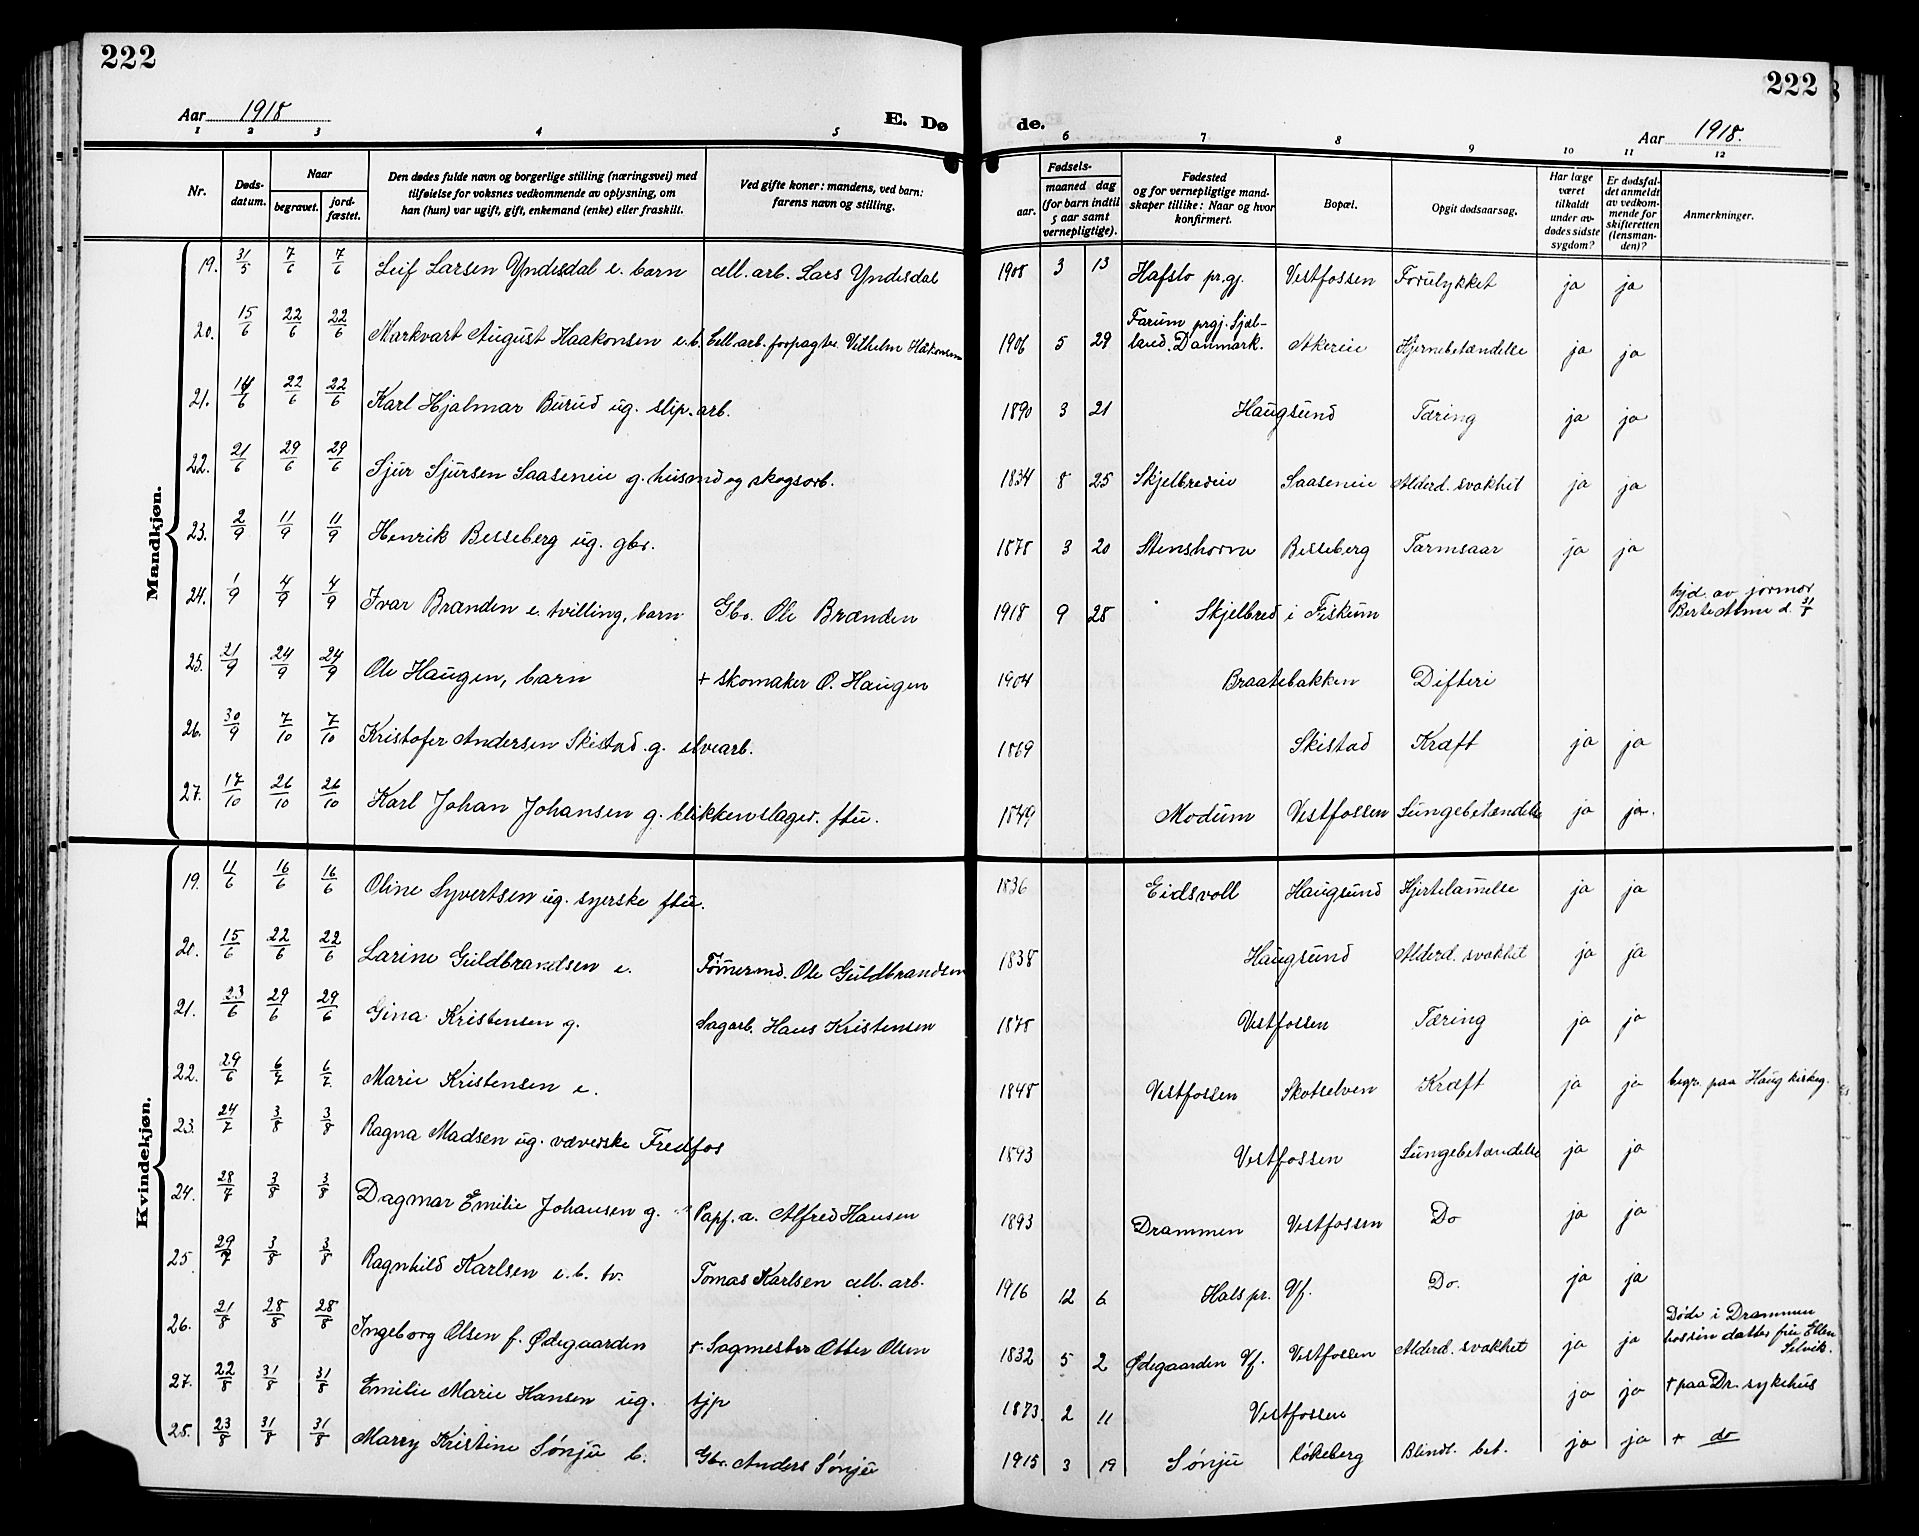 222
222
Aar 1918
E. Dø
de.
Aar 1918.
1 2 3 4 5 6 7 8 9 10 11 12
Nr. Døds-datum. Naar begravet. jord-fæstet.
Den dødes fulde navn og borgerlige stilling (næringsvei) med
tilføielse for voksnes vedkommende av oplysning, om
han (hun) var ugift, gift, enkemand (enke) eller fraskilt.
Ved gifte koner: mandens, ved barn:
farens navn og stilling.
Fødsels-
aar. maaned dag
(for barn indtil
5 aar samt
vernepligtige).
Fødested
og for vernepligtige mand-
skaper tillike: Naar og hvor
konfirmert.
Bopæl.
Opgit dødsaarsag.
Har læge
været
tilkaldt
under av-
dødes sidste
sygdom?
Er dødsfal-
det anmeldt
av vedkom-
mende for
skifteretten
(lensman-
den)?
Anmerkninger.
Mandkjøn.
19. 31/5 7/6 7/6 Leif Larsen Yndesdal e. barn cell. arb. Lars Yndesdal 1908 3 13 Hafslo pr.gj. Vestfossen Forulykket ja ja
20. 15/6 22/6 22/6 Markvart August Haakonsen e.b. Cell. arb. forpagter Vilhelm Haakonsen 1906 5 29 Farum prgj. Sjæl-
land. Danmark. Akereie Hjernebetændelse ja ja
21. 14/6 22/6 22/6 Karl Hjalmar Burud ug. slip. arb. 1890 3 21 Haugsund Tæring ja ja
22. 21/6 29/6 29/6 Sjur Sjursen Saaseneie g. husmd og skogsarb. 1834 8 25 Skjelbredeie Saaseneie Alderd. svakhet ja ja
23. 2/9 11/9 11/9 Henrik Besseberg ug. gbr. 1878 3 20 Stenshorn Besseberg Tarmsaar ja ja
24. 1/9 4/9 4/9 Ivar Brænden e. tvilling, barn Gbr. Ole Brænden 1918 9 28 Skjelbred i Fiskum hjd. av jormor
Berte Anne d. 31/8
25. 21/9 24/9 24/9 Ole Haugen, barn + skomaker O. Haugen 1904 Braatebakken Difteri
26. 30/9 7/10 7/10 Kristofer Andersen Skistad g. elvearb. 1869 Skistad Kræft ja ja
27. 17/10 26/10 26/10 Karl Johan Johansen g. blikkenslager. ftu. 1849 Modum Vestfossen Lungebetændelse ja ja.
Kvindekjøn.
19. 11/6 16/6 16/6 Oline Syvertsen ug. syerske ftu. 1836 Eidsvoll Haugsund Hjertelamelse ja ja
20. 15/6 22/6 22/6 Larine Guldbrandsen e. Tømermd. Ole Guldbrandsen 1838 Haugsund Alderd. svakhet ja ja
21. 23/6 29/6 29/6 Gina Kristensen g. Sagarb. Hans Kristensen 1878 Vestfossen Tæring ja ja
22. 29/6 6/7 6/7 Marie Kristensen e. 1848 Vestfossen Skotselven Kræft ja ja begr. paa Haug kirkeg.
23. 24/7 3/8 3/8 Ragna Madsen ug. væverske Fredfos 1893 Vestfossen Lungebetændelse ja ja
24. 28/7 3/8 3/8 Dagmar Emilie Johansen g. Papf. a. Alfred Hansen 1893 Drammen Vestfossen Do ja ja
25 29/7 3/8 3/8 Ragnhild Karlsen e. b. tv. Tomas Karlsen cell. arb. 1916 12 6 Hals pr. Vf. Do. ja ja
26. 21/8 28/8 28/8 Ingeborg Olsen f. Ødegaarden +. Sagmester Otter Olsen 1832 5 2 Ødegaarden Vf. Vestfossen Alderd. svakhet ja ja Døde i Drammen
hossin datter fru Ellen
Selvik.
27. 22/8 31/8 31/8 Emilie Marie Hansen ug. tjp 1873. 2 11 Vestfossen ja ja + paa Dr. sykehus
28. 23/8 31/8 31/8 Marry Kristine Sønju b. Gbr. Anders Sønju 1915 3 19 Sønju Løkeberg Blindt. bet. ja ja + do